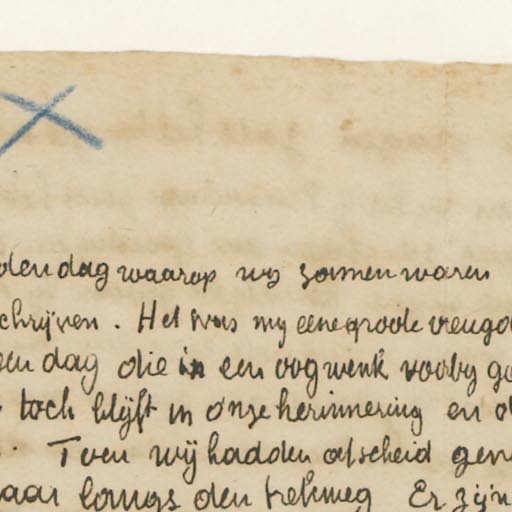 den dag waarop wij samen waren
chrijven. Het was my eene groote vreugd
en dag die in een oogwenk voorby g
toch blijft in onze herinnering en d
Toen wij hadden afscheid gen
aar langs den trekweg Er zijn